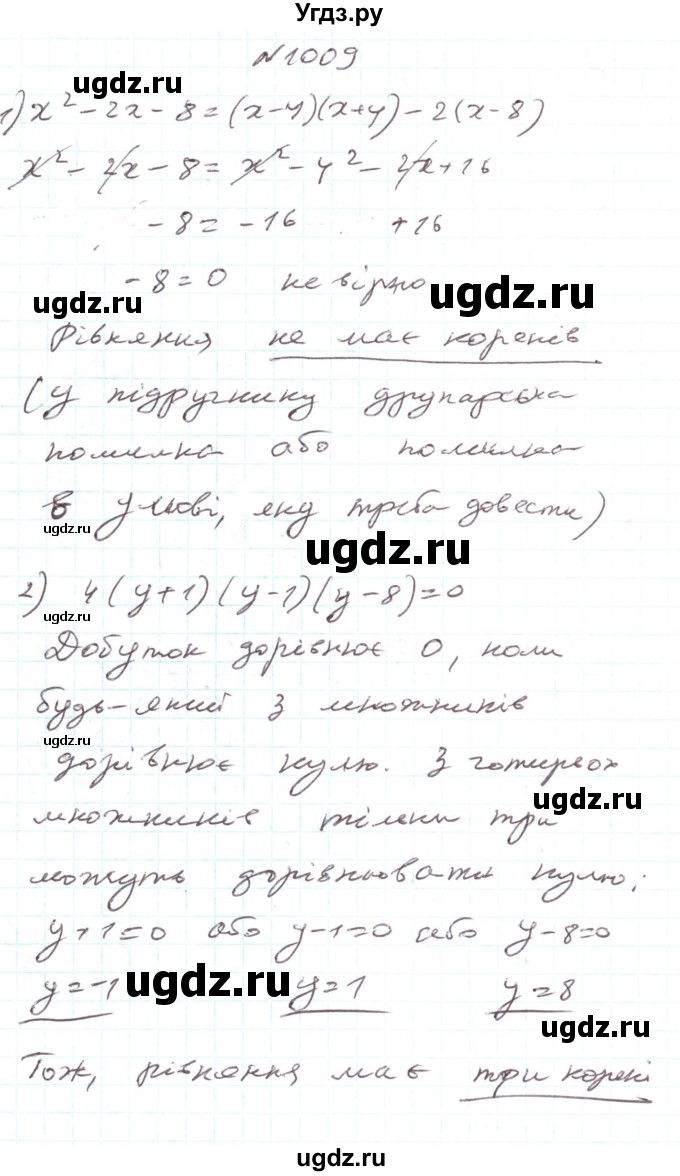 Угдз.ру
№1009
ugdz.ru
1) x² - 2x - 8 = (x-4)(x+4) - 2(x-8)
x² - 2x - 8 = x² - 4² - 2x + 16
-8 = -16 + 16
-8 = 0 не вірно
ugdz.ru
ugdz.ru
Рівняння не має коренів
(у підручнику друкарська
помилка або помилка
в умові, яку треба довести)
ugdz.ru
ugdz.ru
2) 4(y+1)(y-1)(y-8)=0
ugdz.ru
Добуток дорівнює 0, коли
будь-який з множників
ugdz.ru
дорівнює нулю. З чотирьох
ugdz.ru
множників тільки три
можуть дорівнювати нулю:
y+1=0 або y-1=0 або y-8=0
y=-1 y=1 y=8
ugdz.ru
ugdz.ru
Тож, рівняння має три корені
ugdz.ru